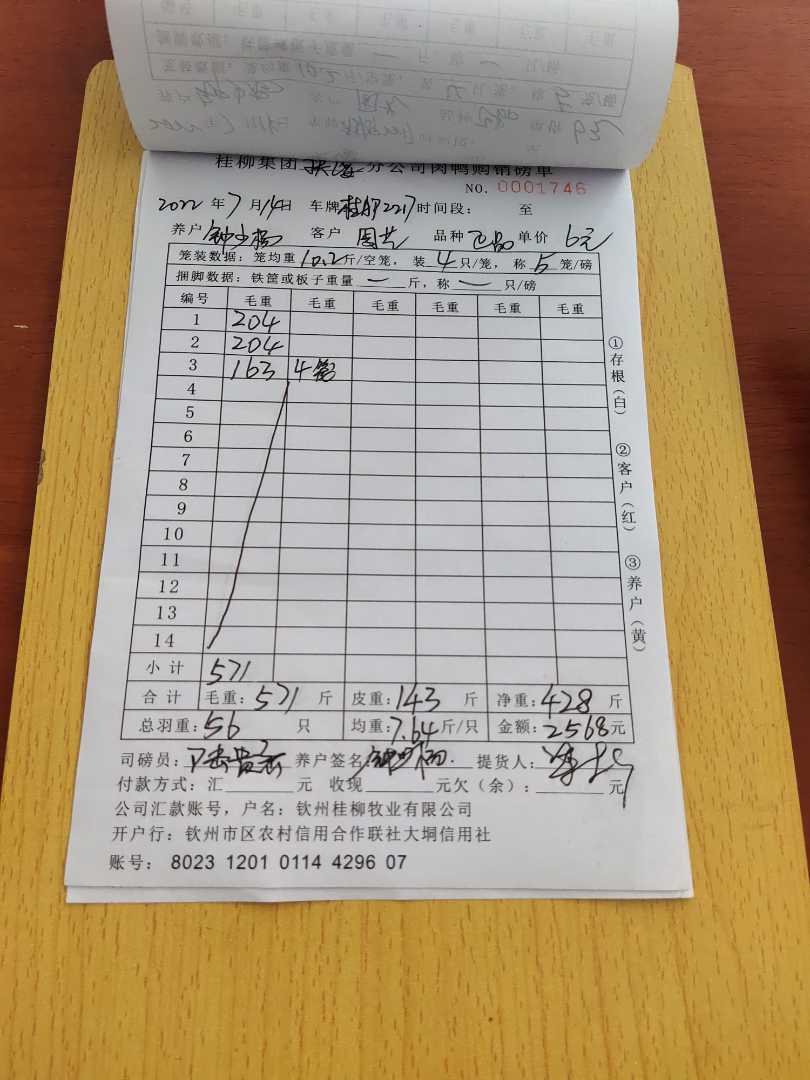 桂柳集团 分公司肉鸭购销磅单
NO. 0001746
2022 年 7 月 14 日 车牌 桂 2217 时间段: 至
养户 钟 客户 周艺 品种 正品 单价 6元
笼装数据: 笼均重 10.2 斤/空笼, 装 4 只/笼, 称 5 笼/磅
捆脚数据: 铁筐或板子重量 一 斤, 称 一 只/磅
编号 毛重 毛重 毛重 毛重 毛重 毛重
1 204
2 204
3 163 4笼
4
5
6
7
8
9
10
11
12
13
14
小计 571
合计 毛重: 571 斤 皮重: 143 斤 净重: 428 斤
总羽重: 56 只 均重: 7.64 斤/只 金额: 2568 元
司磅员: 养户签名 钟 提货人:
付款方式: 汇 元 收现 元欠(余): 元
公司汇款账号, 户名: 钦州桂柳牧业有限公司
开户行: 钦州市区农村信用合作联社大垌信用社
账号: 8023 1201 0114 4296 07
①存根(白)
②客户(红)
③养户(黄)